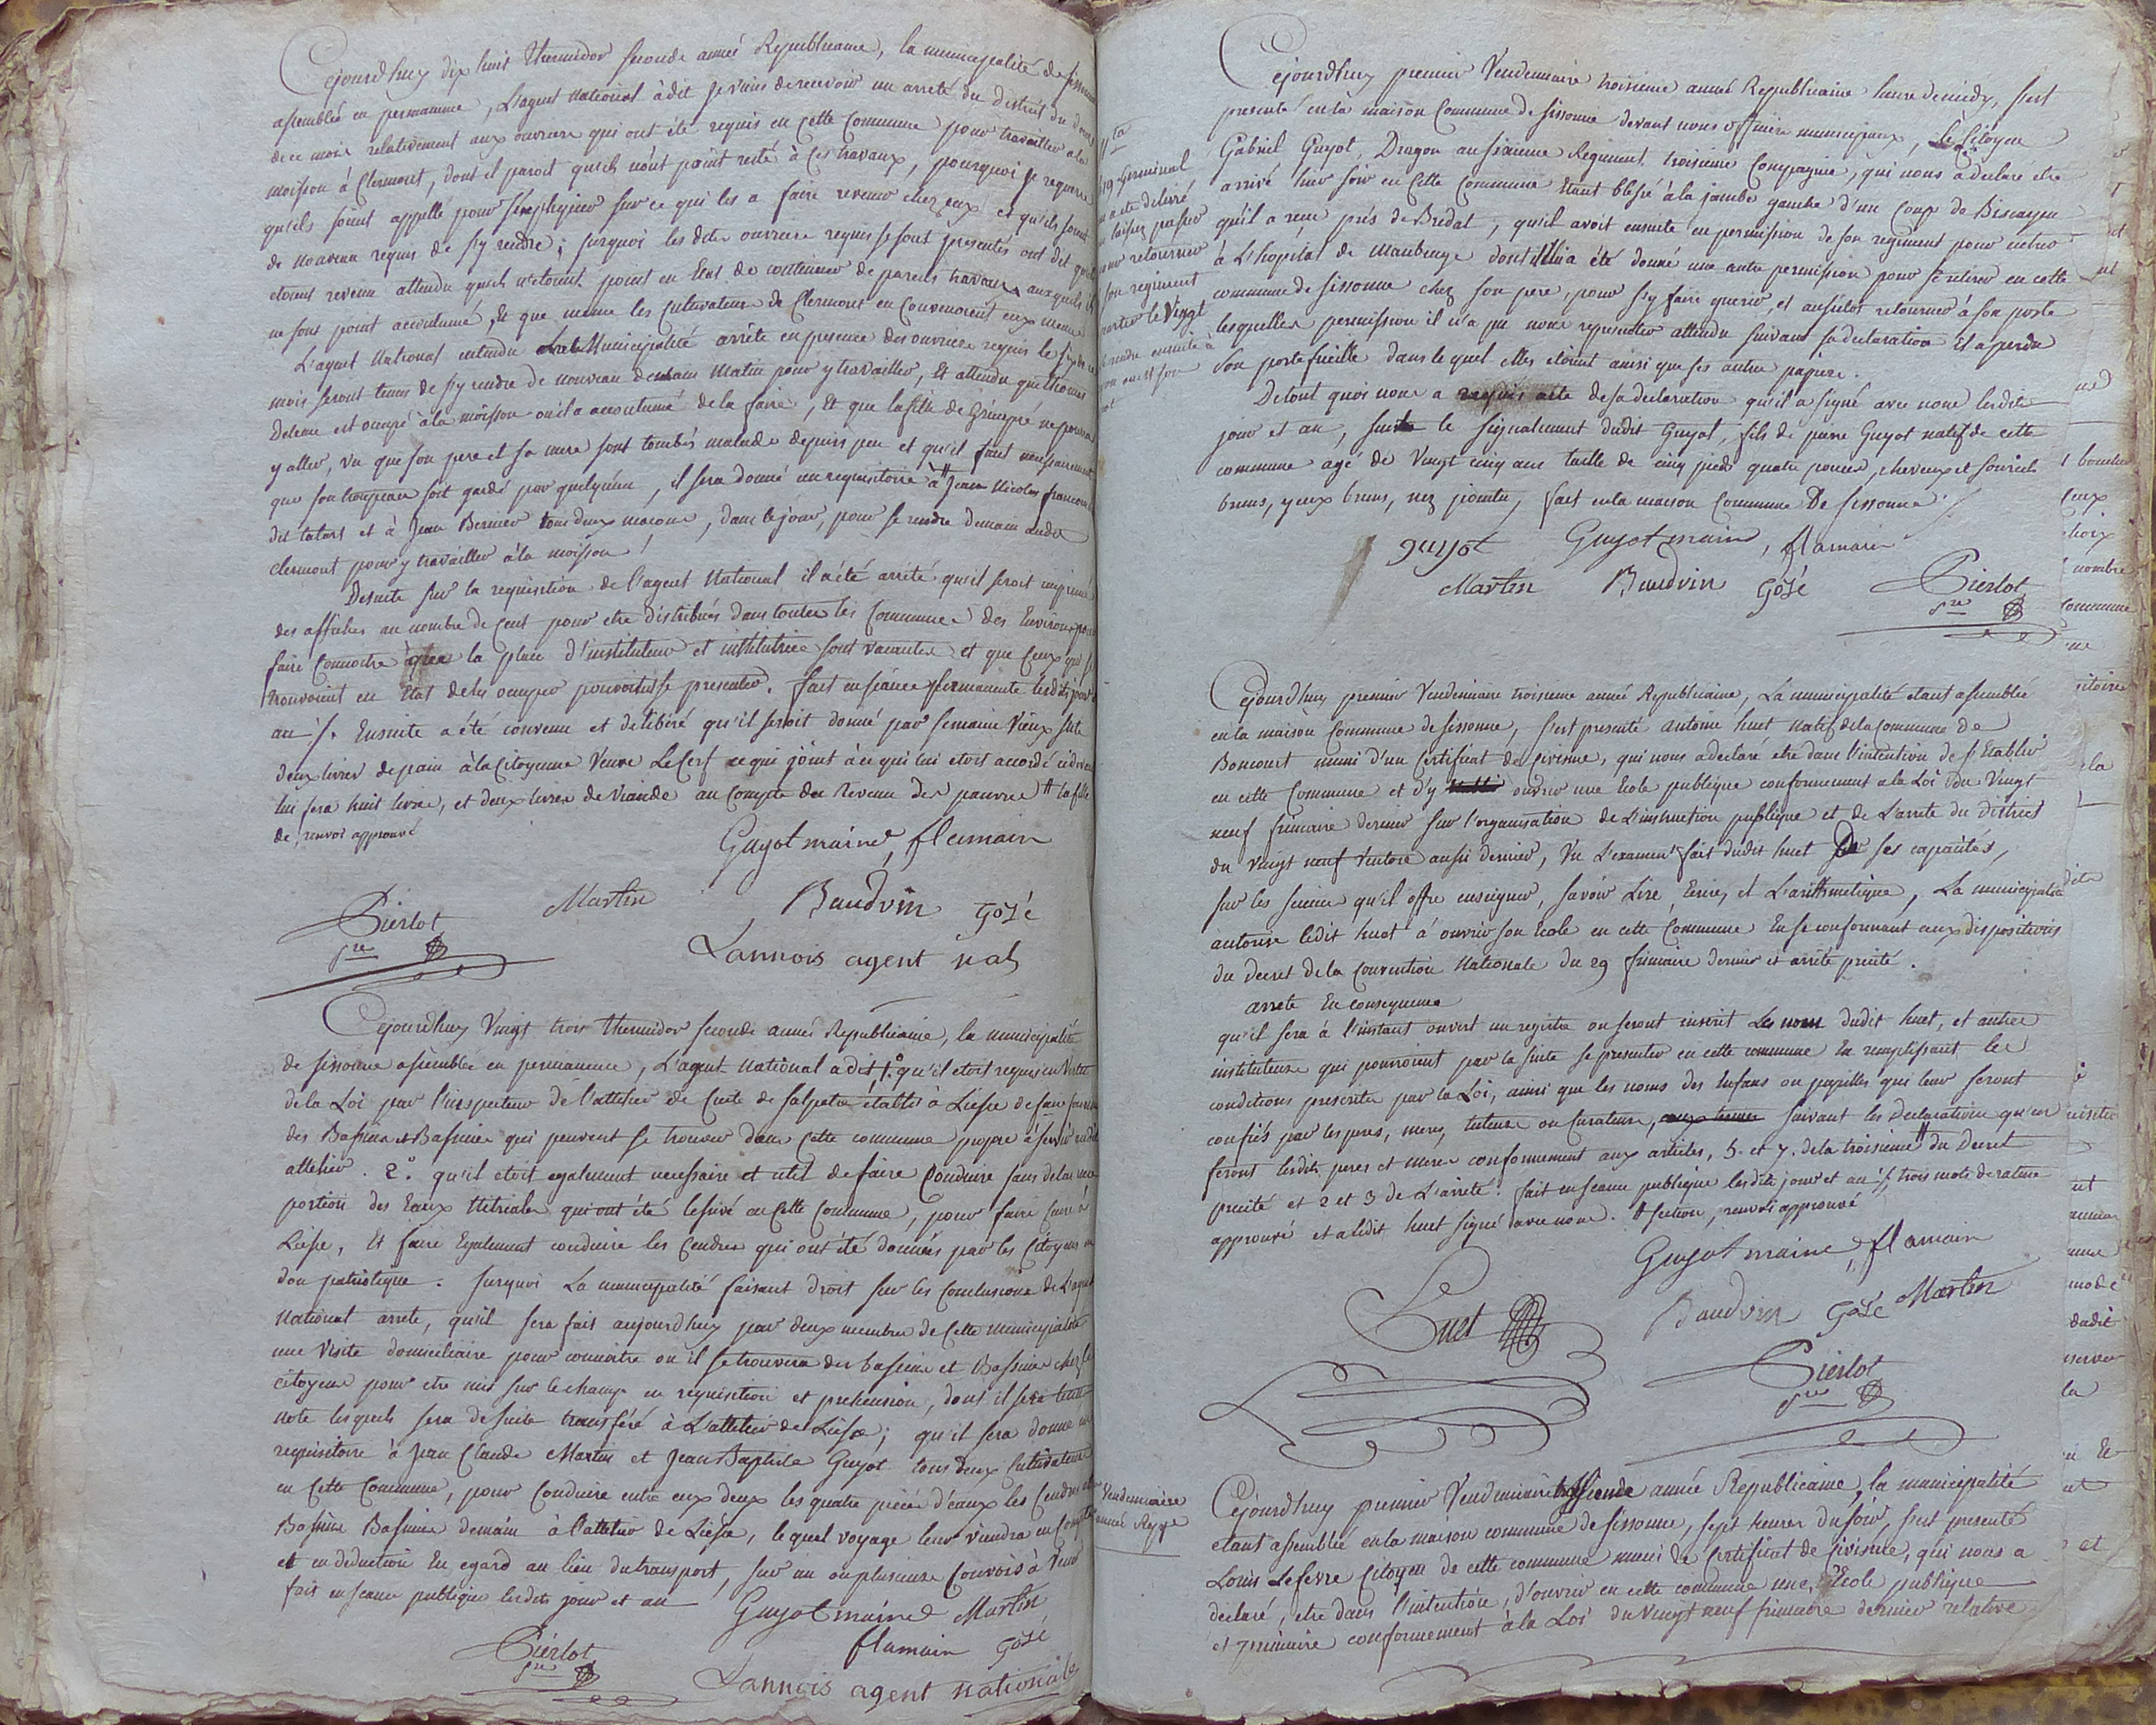 Cejourdhuy dix huit Thermidor seconde année Republicaine, la municipalité de sissonne
assemblée en permanence, L'agent national à dit je viens de recevoir un arreté du district du douze
de ce mois relativement aux ouvriers qui ont été requis en cette Commune pour travailler a la
moisson à Clermont, dont il paroit qu'ils n'ont point resté à ces travaux, pourquoi je requiere
qu'ils soient appellé pour s'expliquer sur ce qui les a faire revenir chez eux et qu'ils soient
de nouveau requis de s'y rendre; surquoi les dits ouvriers requis se sont presentés ont dit qu'ils
etoient revenu attendu qu'ils n'etoient point en Etat de continuer de pareils travaux auxquels ils
ne sont point accoutumé, Et que meme les Cultivateurs de Clermont en Convenoient eux meme
L'agent National entendu la Municipalité arrête en presence des ouvriers requis le six de ce
mois seront tenus de s'y rendre de nouveau demain Matin pour y travailler, Et attendu que thomas
Deleau est occupé à la moisson ou il a accoutumé de la faire, Et que la fille de ne pourra
y aller, vu que son pere et sa mere sont tombés malade depuis peu et qu'il faut necessairement
que son troupeau soit gardé par quelqu'un, il sera donné un requisitoire à # Jean Nicolas francois
dit tatars et à Jean Bernier tous deux maçons, dans le jour, pour se rendre demain audit
clermont pour y travailler à la moisson /
Desuite sur la requisition de l'agent National il a été arrété qu'il seroit imprimé
des affiches au nombre de Cent pour etre distribués dans toutes les Communes des Environs pour
faire Connoitre que la place d'instituteur et institutrice sont vacantes et que Ceux qui se
trouvoient en Etat de les occuper pouvoient se presenter. fait en séance permanente lesdits jour et
an /. Ensuite a été convenu et deliberé qu'il seroit donné par semaine Vieux stile
deux livres de pain à la Citoyenne Veuve Le Cerf ce qui joint à ce qui lui etoit accordé cidevant
lui fera huit livres, et deux livres de Viande au Compte du Revenu des pauvres # la fille
de, renvoi approuvé
Guyot maire, flamain
Pierlot Martin Baudvin Gosé
sre Lannois agent nal
Cejourdhuy Vingt trois thermidor seconde année Republicaine, la municipalité
de sissonne assemblée en permanence, L'agent National a dit 1.° qu'il etoit requis en Vertu
de la Loi par l'inspecteur de l'attelier de Cuite de salpetre etablis à Liesse de faire fournir
des Bassins et Bassines qui peuvent se trouver dans Cette commune propre à servir audit
attelier. 2.° qu'il etoit egalement necessaire et utile de faire Conduire sans delai une
portion des Eaux Nitriales qui ont été lessivé en Cette Commune, pour faire Cuire à
Liesse, Et faire Egalement conduire les Cendres qui ont été données par les Citoyens en
don patriotique. surquoi La municipalité faisant droit sur les Conclusions de L'agent
National arrete, qu'il sera fait aujourdhuy par deux membres de Cette municipalité
une Visite domiciliaire pour connoitre ou il se trouvera des bassins et Bassines chez les
citoyens pour etre mis sur le champ en requisition et prehension, dont il sera tenu
note lesquels sera desuite transféré à L'attelier de Liesse; qu'il sera donné un
requisitoire à Jean Claude Martin et Jean Baptiste Guyot tous deux Cultivateurs
en Cette Commune, pour Conduire entre eux deux les quatre pièces d'eaux les Cendres et
Bassins Bassines demain à l'attelier de Liesse, lequel voyage leur viendra en Compte
et en deduction Eu egard au lieu du transport, sur un ou plusieurs Convois à Venir
fait en séance publique lesdits jour et an Guyot maire Martin
Pierlot flamain Gosé
sre Lannois agent national
19 Germinal
a été délivré
laissez passer
pour retourner
son regiment
partir le Vingt
rendre ensuite à
Cejourdhuy premier Vendemiaire troisieme année Republicaine heure de midy, s'est
presenté en la maison Commune de sissonne devant nous officiers municipaux, le Citoyen
Gabriel Guyot, Dragon au sixieme Regiment troisieme Compagnie, qui nous à declaré être
arrivé hier soir en Cette Commune Etant blessé à la jambe gauche d'un Coup de Biscayen
qu'il a reçu près de Bredat; qu'il avoit ensuite eu permission de son regiment pour entrer
à L'hopital de Maubeuge dont il lui a été donné une autre permission pour se retirer en cette
commune de sissonne chez son pere, pour s'y faire guerir, et aussitot retourner à son poste
lesquelles permission il n'a pu nous representer attendu suivant sa declaration il a perdu
son portefeuille dans lequel elles etoient ainsi que ses autres papiers.
De tout quoi nous a requis acte de sa declaration qu'il a signé avec nous lesdits
jour et an, suit le signalement dudit Guyot, fils de pierre Guyot natif de cette
commune agé de Vingt cinq ans taille de cinq pieds quatre pouces, cheveux et sourcils
bruns, yeux bruns, nez pointu, fait en la maison Commune De sissonne /
guyot Guyot maire, flamain
Martin Baudvin Gosé Pierlot
sre
Cejourdhuy premier Vendemiaire troisieme année Republicaine, La municipalité etant assemblée
en la maison Commune de sissonne, s'est presenté antoine huet natif de la Commune de
Boncourt muni d'un Certificat de Civisme, qui nous a declaré etre dans l'intention de s'Etablir
en cette Commune et d'y ouvrir une Ecole publique conformement a la Loi du Vingt
neuf frimaire dernier sur l'organisation de L'instruction publique et de L'arreté du District
du vingt neuf Ventose aussi dernier, Vu L'examen fait dudit huet sur ses capacités,
sur les science qu'il offre enseigner, savoir Lire, Ecrire, et L'arithmetique, La municipalité
autorise ledit huet à ouvrir son Ecole en cette Commune En se conformant aux dispositions
du Decret de la Convention Nationale du 29 frimaire dernier et arrété précité.
arrete En consequence
qu'il sera à l'instant ouvert un registre ou seront inscrit les noms dudit huet, et autres
instituteurs qui pourroient par la suite se presenter en cette commune En remplissant les
conditions prescrites par la Loi, ainsi que les noms des Enfans ou pupilles qui leur seront
confiés par les peres, meres, tuteurs ou Curateurs, suivant les Declarations qu'en
feront lesdits peres et meres conformement aux articles, 5. et 7. de la troisieme # du Decret
précité et 2 et 3 de L'arreté. fait en séance publique lesdits jour et an /. trois mots de rature
approuvé et a ledit huet signé avec nous. # section, renvoi approuvé
Guyot maire, flamain
Huet Baudvin Gosé Martin
Pierlot
sre
Vendemiaire
année Repce
Cejourdhuy premier Vendemiaire année Republicaine, la municipalité
etant assemblée en la maison commune de sissonne, sept heures du soir, s'est presenté
Louis Lefevre Citoyen de cette commune muni de Certificat de Civisme, qui nous a
declaré, etre dans l'intention, d'ouvrir en cette commune une Ecole publique
et primaire conformement à la Loi du Vingt neuf frimaire dernier relative